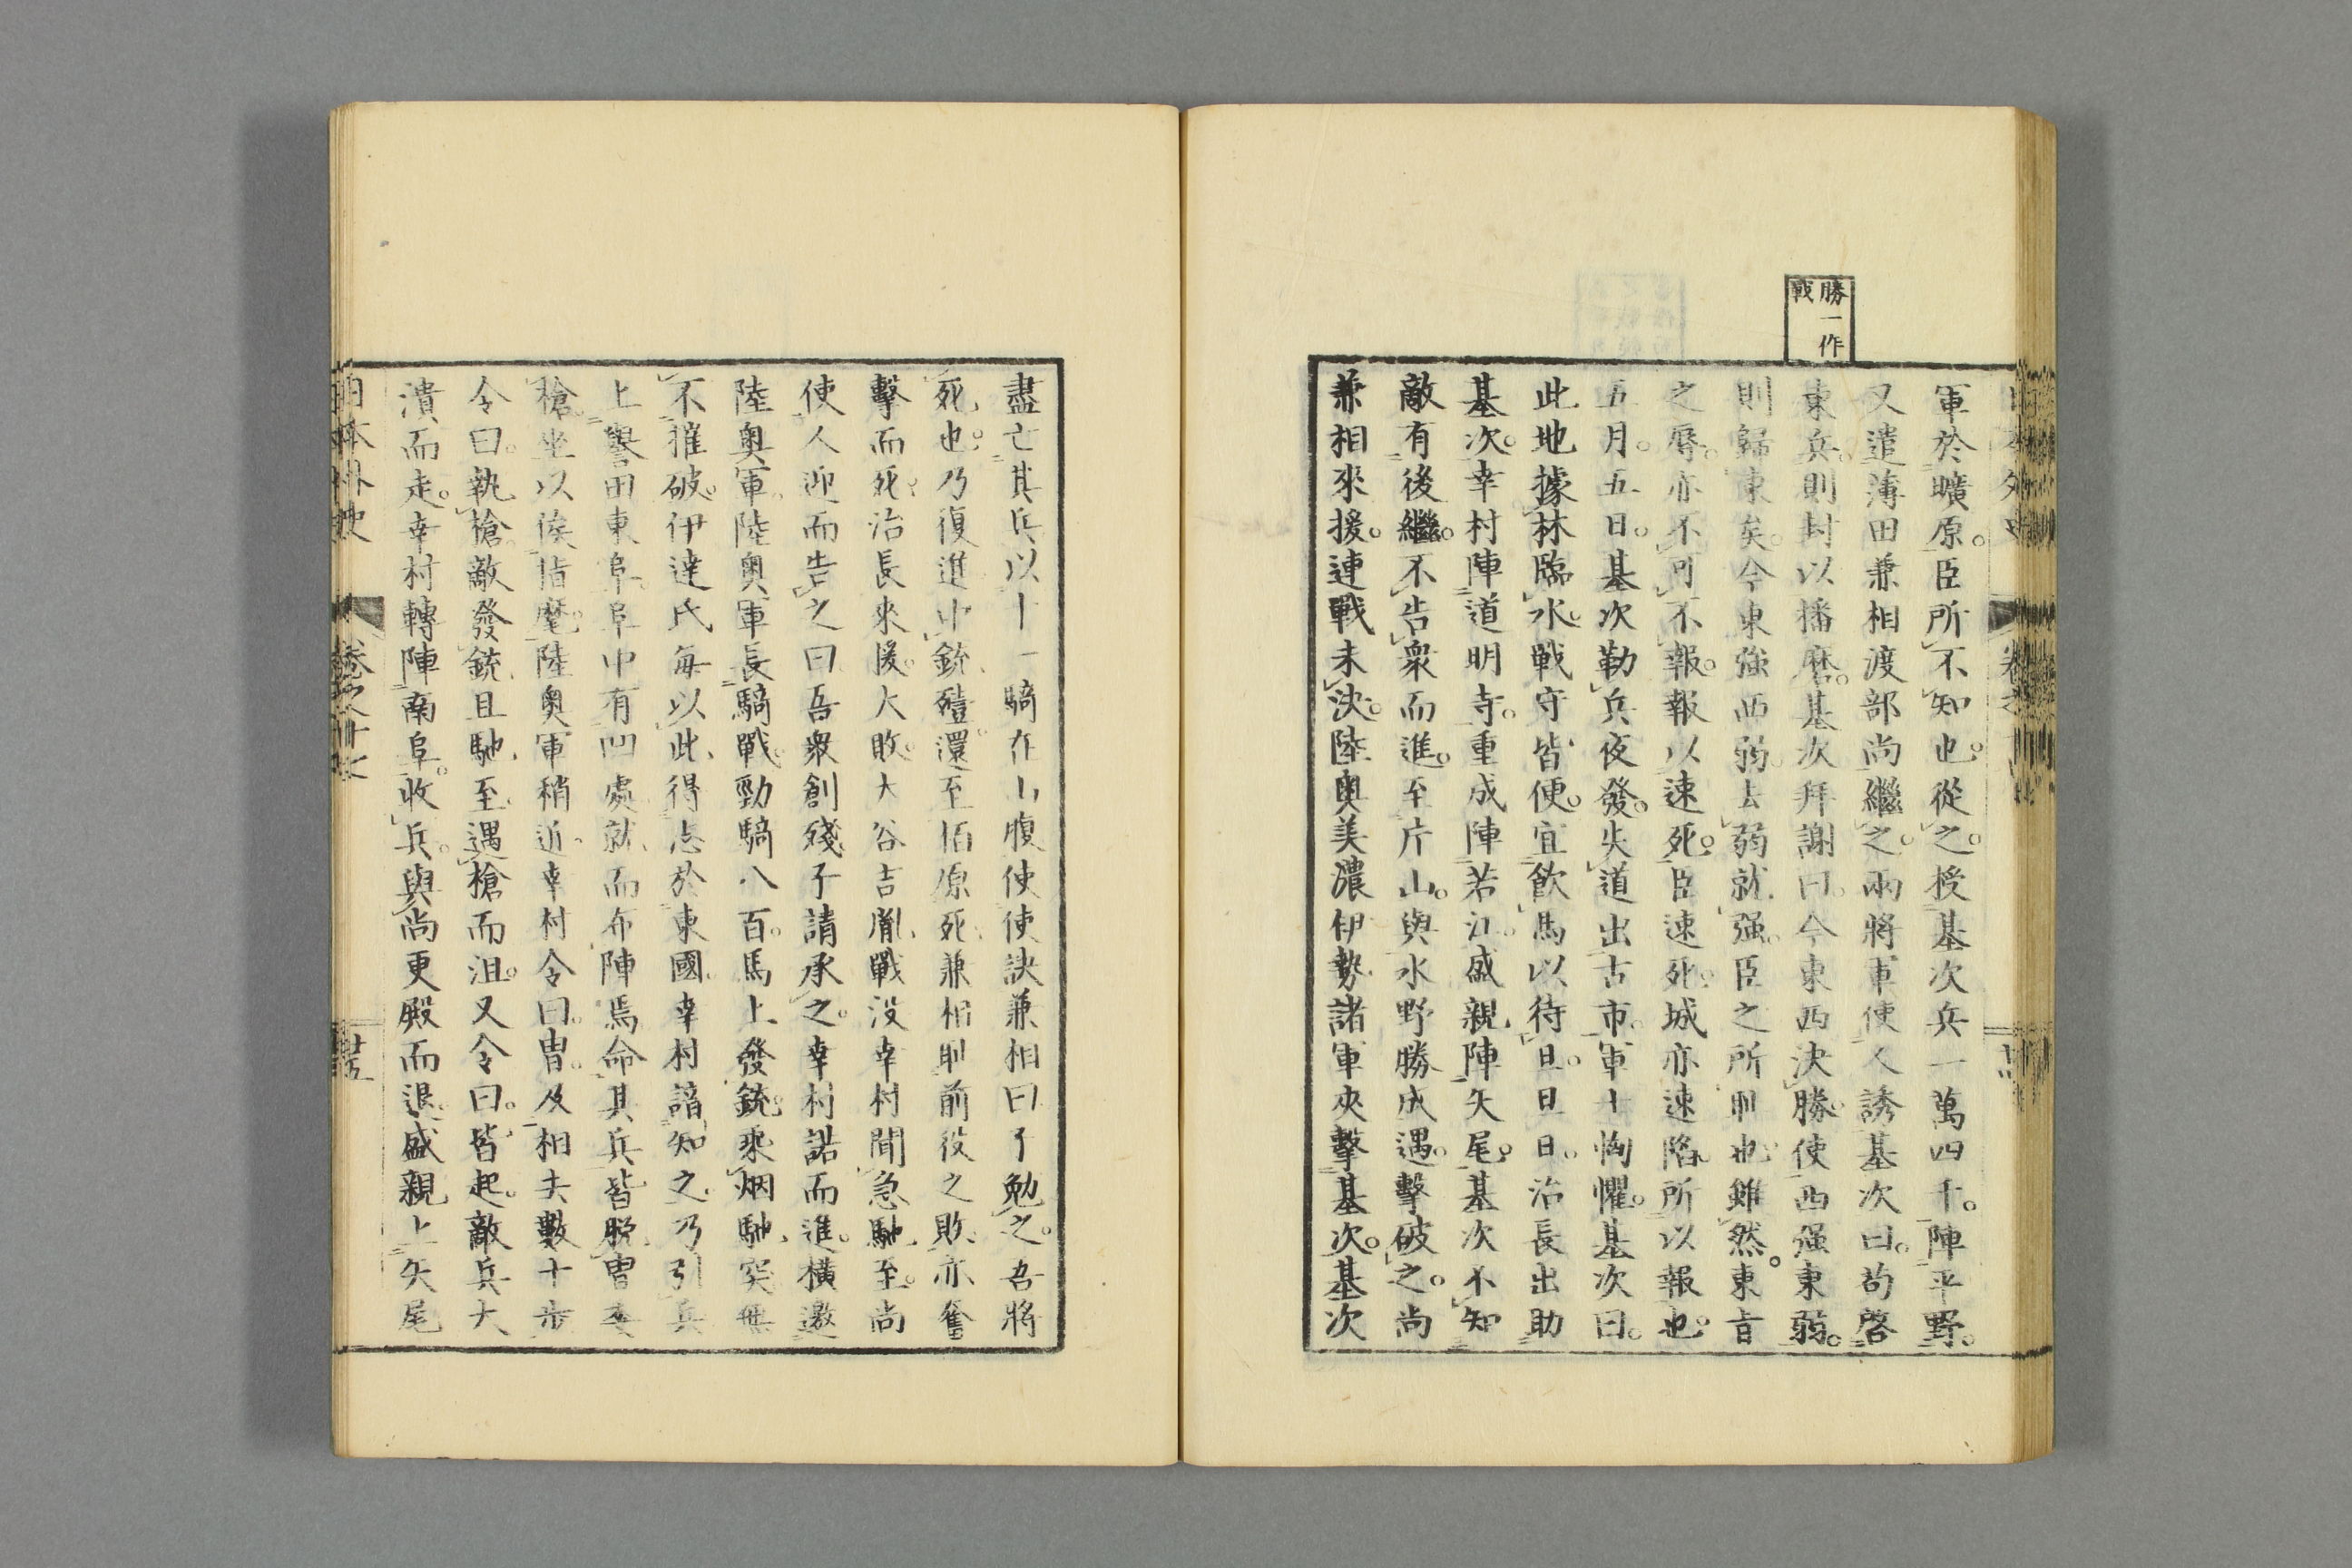 勝一作
戰
軍於曠原。臣所不知也。從之。授基次兵一萬四千。陣平野。
又遣薄田兼相渡部尚繼之。兩將軍使人誘基次曰。苟啓
東兵。則封以播磨。基次拜謝曰。今東西決勝。使西强東弱。
則歸東矣。今東強西弱。去弱就强。臣之所耻也。雖然。東旨
之辱。亦不可不報。報以速死。臣速死。城亦速陷。所以報也。
五月。五日。基次勒兵夜發。失道出古市。軍士恟懼。基次曰。
此地據林臨水。戰守皆便。宜飲馬以待旦。旦日。治長出助
基次。幸村陣道明寺。重成陣若江。盛親陣矢尾。基次不知
敵有後繼。不告衆而進。至片山。與水野勝成遇。擊破之。尚
兼相來援。連戰未決。陸奧美濃伊勢諸軍夾擊基次。基次
盡亡其兵以十一騎在山腹使使訣兼相曰子勉之。吾將
死也。乃復進中銃殪。還至栢原死。兼相耻前役之敗。亦奮
擊而死。治長來援。大敗。大谷吉胤戰没幸村聞急馳至。尚
使人迎而告之曰吾衆創殘子請承之。幸村諾而進。橫邀
陸奧軍。陸奧軍長騎戰。勁騎八百。馬上發銃。乘烟馳突無
不摧破。伊達氏每以此得志於東國。幸村諳知之乃引兵
上譽田東阜。阜中有凹處就而布陣焉命其兵皆脫冑委
槍坐以俟指麾。陸奧軍稍近。幸村令曰。冑。及相去數十步
令曰。執槍。敵發銃且馳至遇槍而沮。又令曰。皆起。敵兵大
潰而走。幸村轉陣南阜。收兵。與尚更殿而退。盛親上矢尾